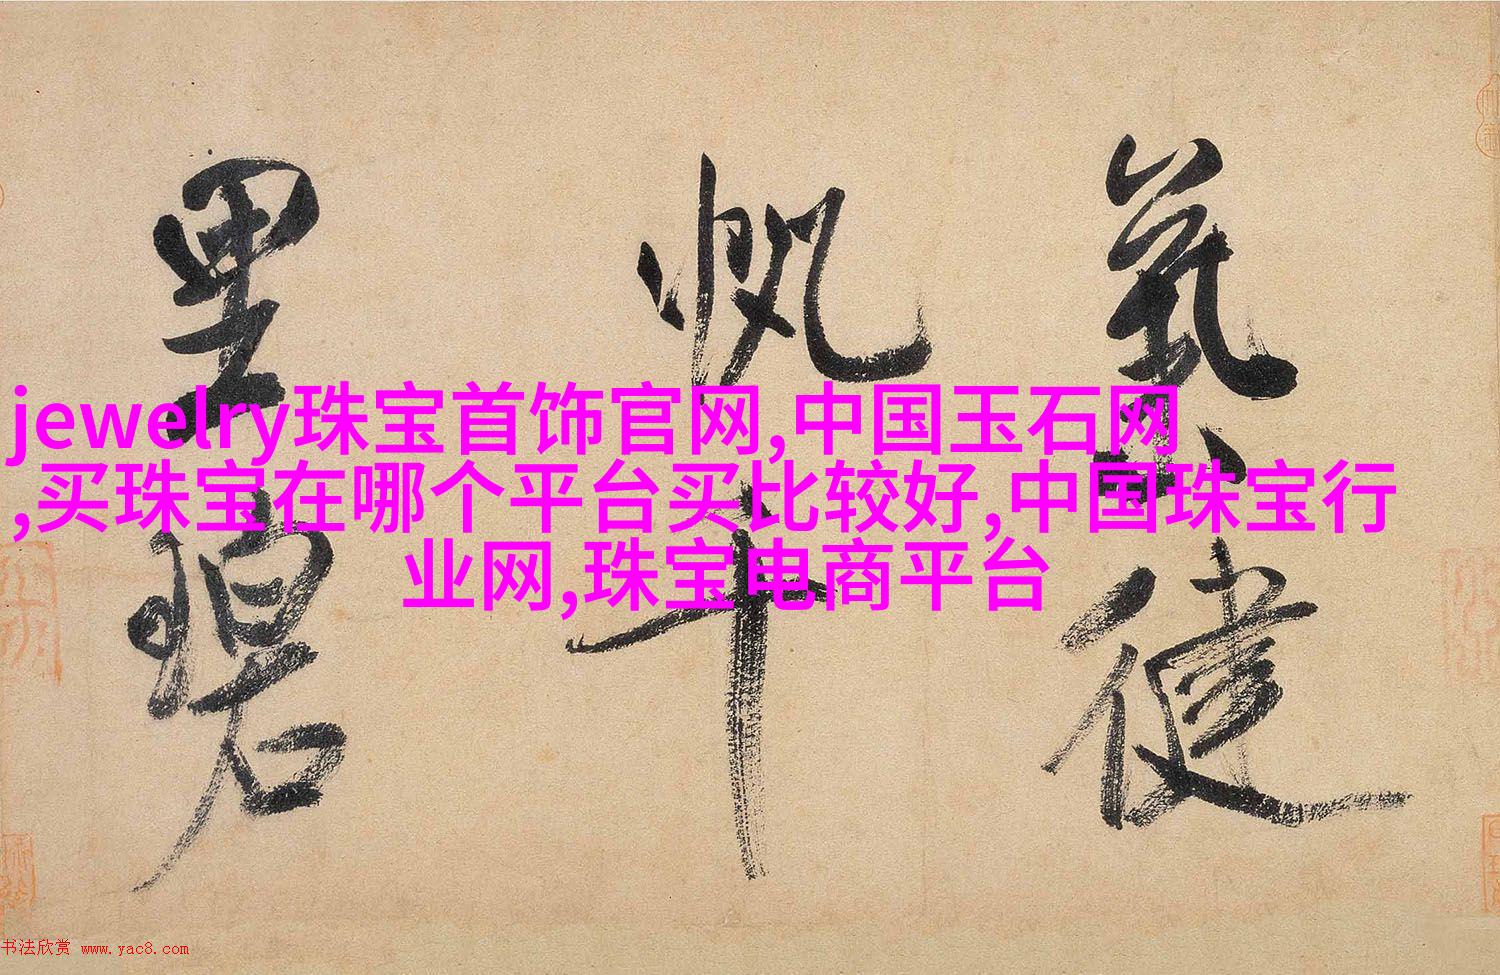 氣健
帆千
里碧
jewelry珠宝首饰官网,中国玉石网
,买珠宝在哪个平台买比较好,中国珠宝行
业网,珠宝电商平台
书法欣赏 www.yac8.com